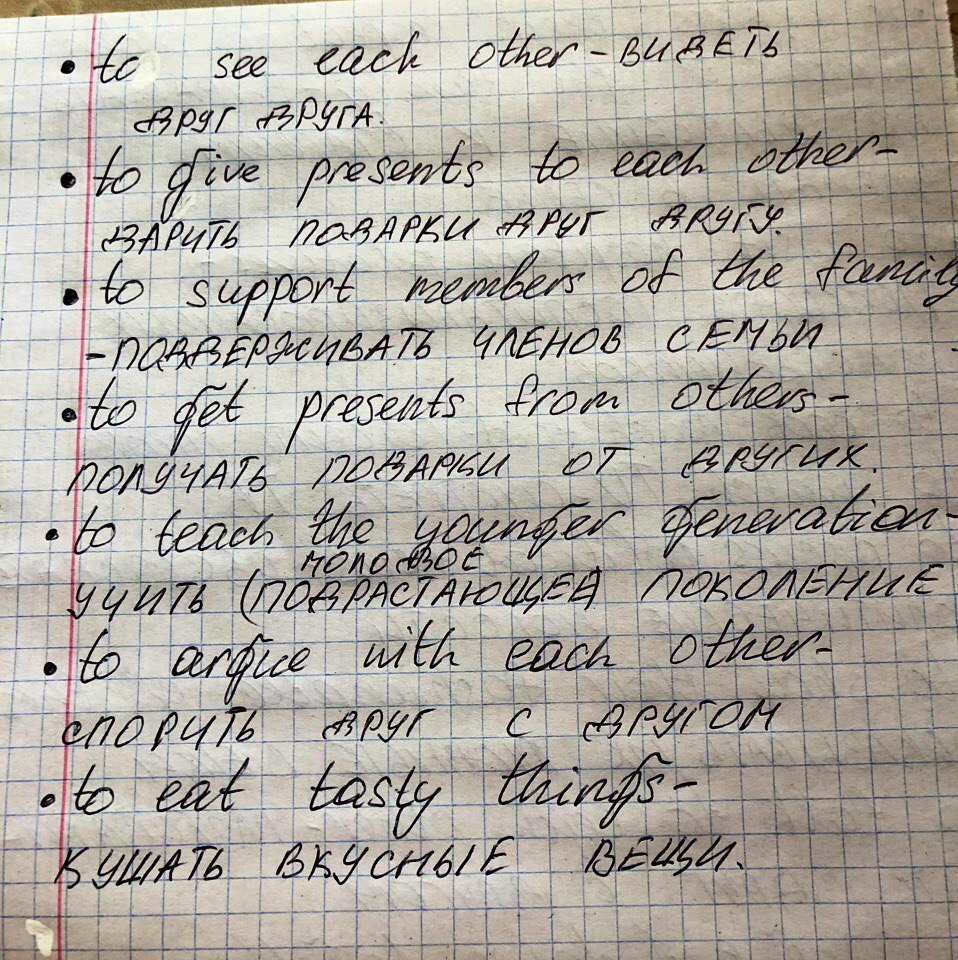 • to see each other - ВИДЕТЬ
ДРУГ ДРУГА.
• to give presents to each other -
ДАРИТЬ ПОДАРКИ ДРУГ ДРУГУ.
• to support members of the family
- ПОДДЕРЖИВАТЬ ЧЛЕНОВ СЕМЬИ
• to get presents from others -
ПОЛУЧАТЬ ПОДАРКИ ОТ ДРУГИХ.
• to teach the younger generation -
МОЛОДОЕ
УЧИТЬ (ПОДРАСТАЮЩЕЕ) ПОКОЛЕНИЕ
• to argue with each other -
СПОРИТЬ ДРУГ С ДРУГОМ
• to eat tasty things -
КУШАТЬ ВКУСНЫЕ ВЕЩИ.